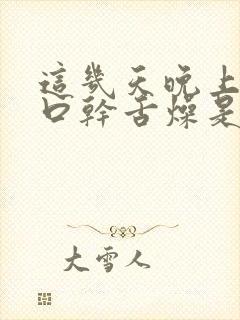 這幾天晚上
口幹舌燥是
大雪人